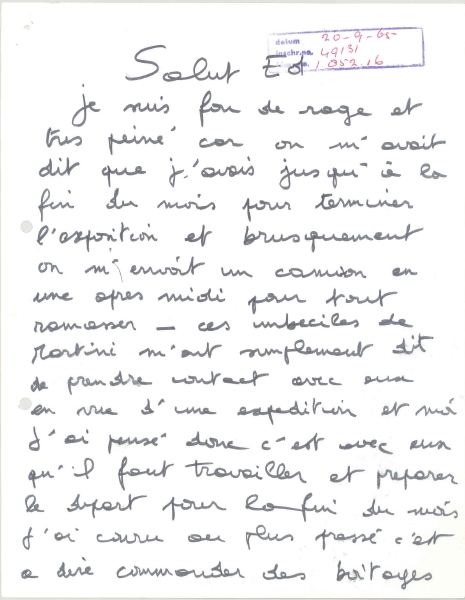 datum 20-9-65
inschr.no. 49131
1.852.16
Salut Ed
je suis fou de rage et
très peiné car on m'avait
dit que j'avais jusqu'à la
fin du mois pour terminer
l'exposition et brusquement
on m'envoit un camion en
une apres midi pour tout
ramasser — ces imbeciles de
Martini m'ont simplement dit
de prendre contact avec eux
en vue d'une expedition et moi
j'ai pensé donc c'est avec eux
qu'il faut travailler et preparer
le depart pour la fin du mois
j'ai couru au plus pressé c'est
a dire commander des boitages